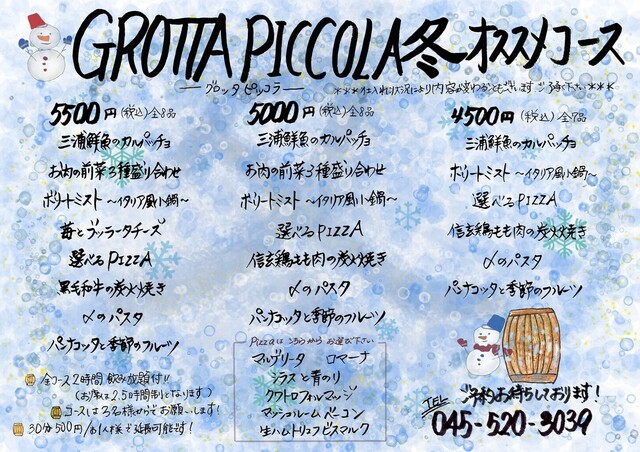 GROTTA PICCOLA 冬オススメコース
ー グロッタピッコラ ー
***仕入れ状況により内容が変わることもございます。ご了承下さい***
5500円(税込)全8品
三浦鮮魚のカルパッチョ
お肉の前菜3種盛り合わせ
ボリートミスト 〜イタリア風小鍋〜
苺とブッラータチーズ
選べるPIZZA
黒毛和牛の炭火焼き
〆のパスタ
パンナコッタと季節のフルーツ
5000円(税込)全8品
三浦鮮魚のカルパッチョ
お肉の前菜3種盛り合わせ
ボリートミスト 〜イタリア風小鍋〜
選べるPIZZA
信玄鶏もも肉の炭火焼き
〆のパスタ
パンナコッタと季節のフルーツ
4500円(税込)全7品
三浦鮮魚のカルパッチョ
ボリートミスト 〜イタリア風小鍋〜
選べるPIZZA
信玄鶏もも肉の炭火焼き
〆のパスタ
パンナコッタと季節のフルーツ
Pizzaはこちらからお選び下さい
マルゲリータ ロマーナ
シラスと青のり
クワトロフォルマッジ
マッシュルームベーコン
生ハムトリュフビスマルク
全コース2時間飲み放題付!!
(お席は2.5時間制となります)
コースは3名様からお願いします!
30分500円/お1人様で延長可能です!
ご予約お待ちしております!
TEL
045-520-3039